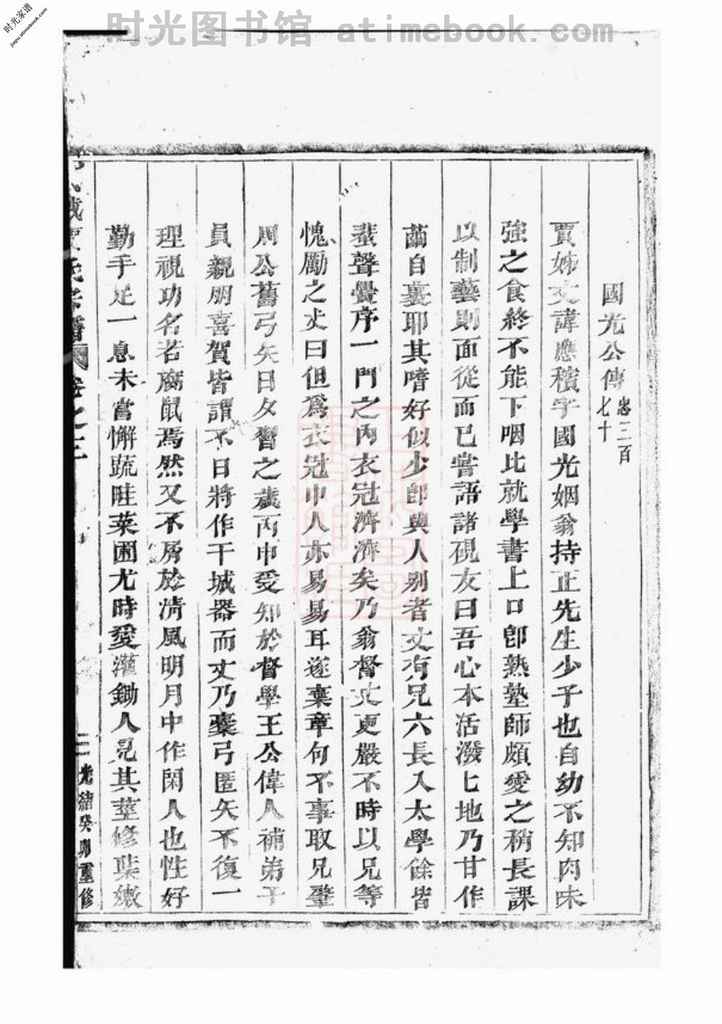 时光图书馆 atimebook.com
时光家谱
jiapu.atimebook.com
國光公傳 忠三百七十
賈姊丈諱應穦字國光姻翁持正先生少子也自幼不知肉味
強之食終不能下咽比就學書上口即熟塾師頗愛之稍長課
以制藝則面從而已嘗語諸硯友曰吾心本活潑七地乃甘作
繭自裹耶其嗜好似少即與人别者丈有兄六長入太學餘皆
蜚聲黌序一門之內衣冠濟濟矣乃翁督丈更嚴不時以兄等
愧勵之丈曰但爲衣冠巾人亦易易耳遂棄章句不事取兄肇
周公舊弓矢日夕習之歲丙申受知於督學王公偉人補弟子
員親朋喜賀皆謂不日將作干城器而丈乃櫜弓匿矢不復一
理視功名若腐鼠焉然又不屑於清風明月中作閑人也性好
勤手足一息未嘗懈蔬畦菜圃尤時愛灌鋤人見其莖修葉嫩
氏宗譜 卷之三 二 光緒癸卯重修